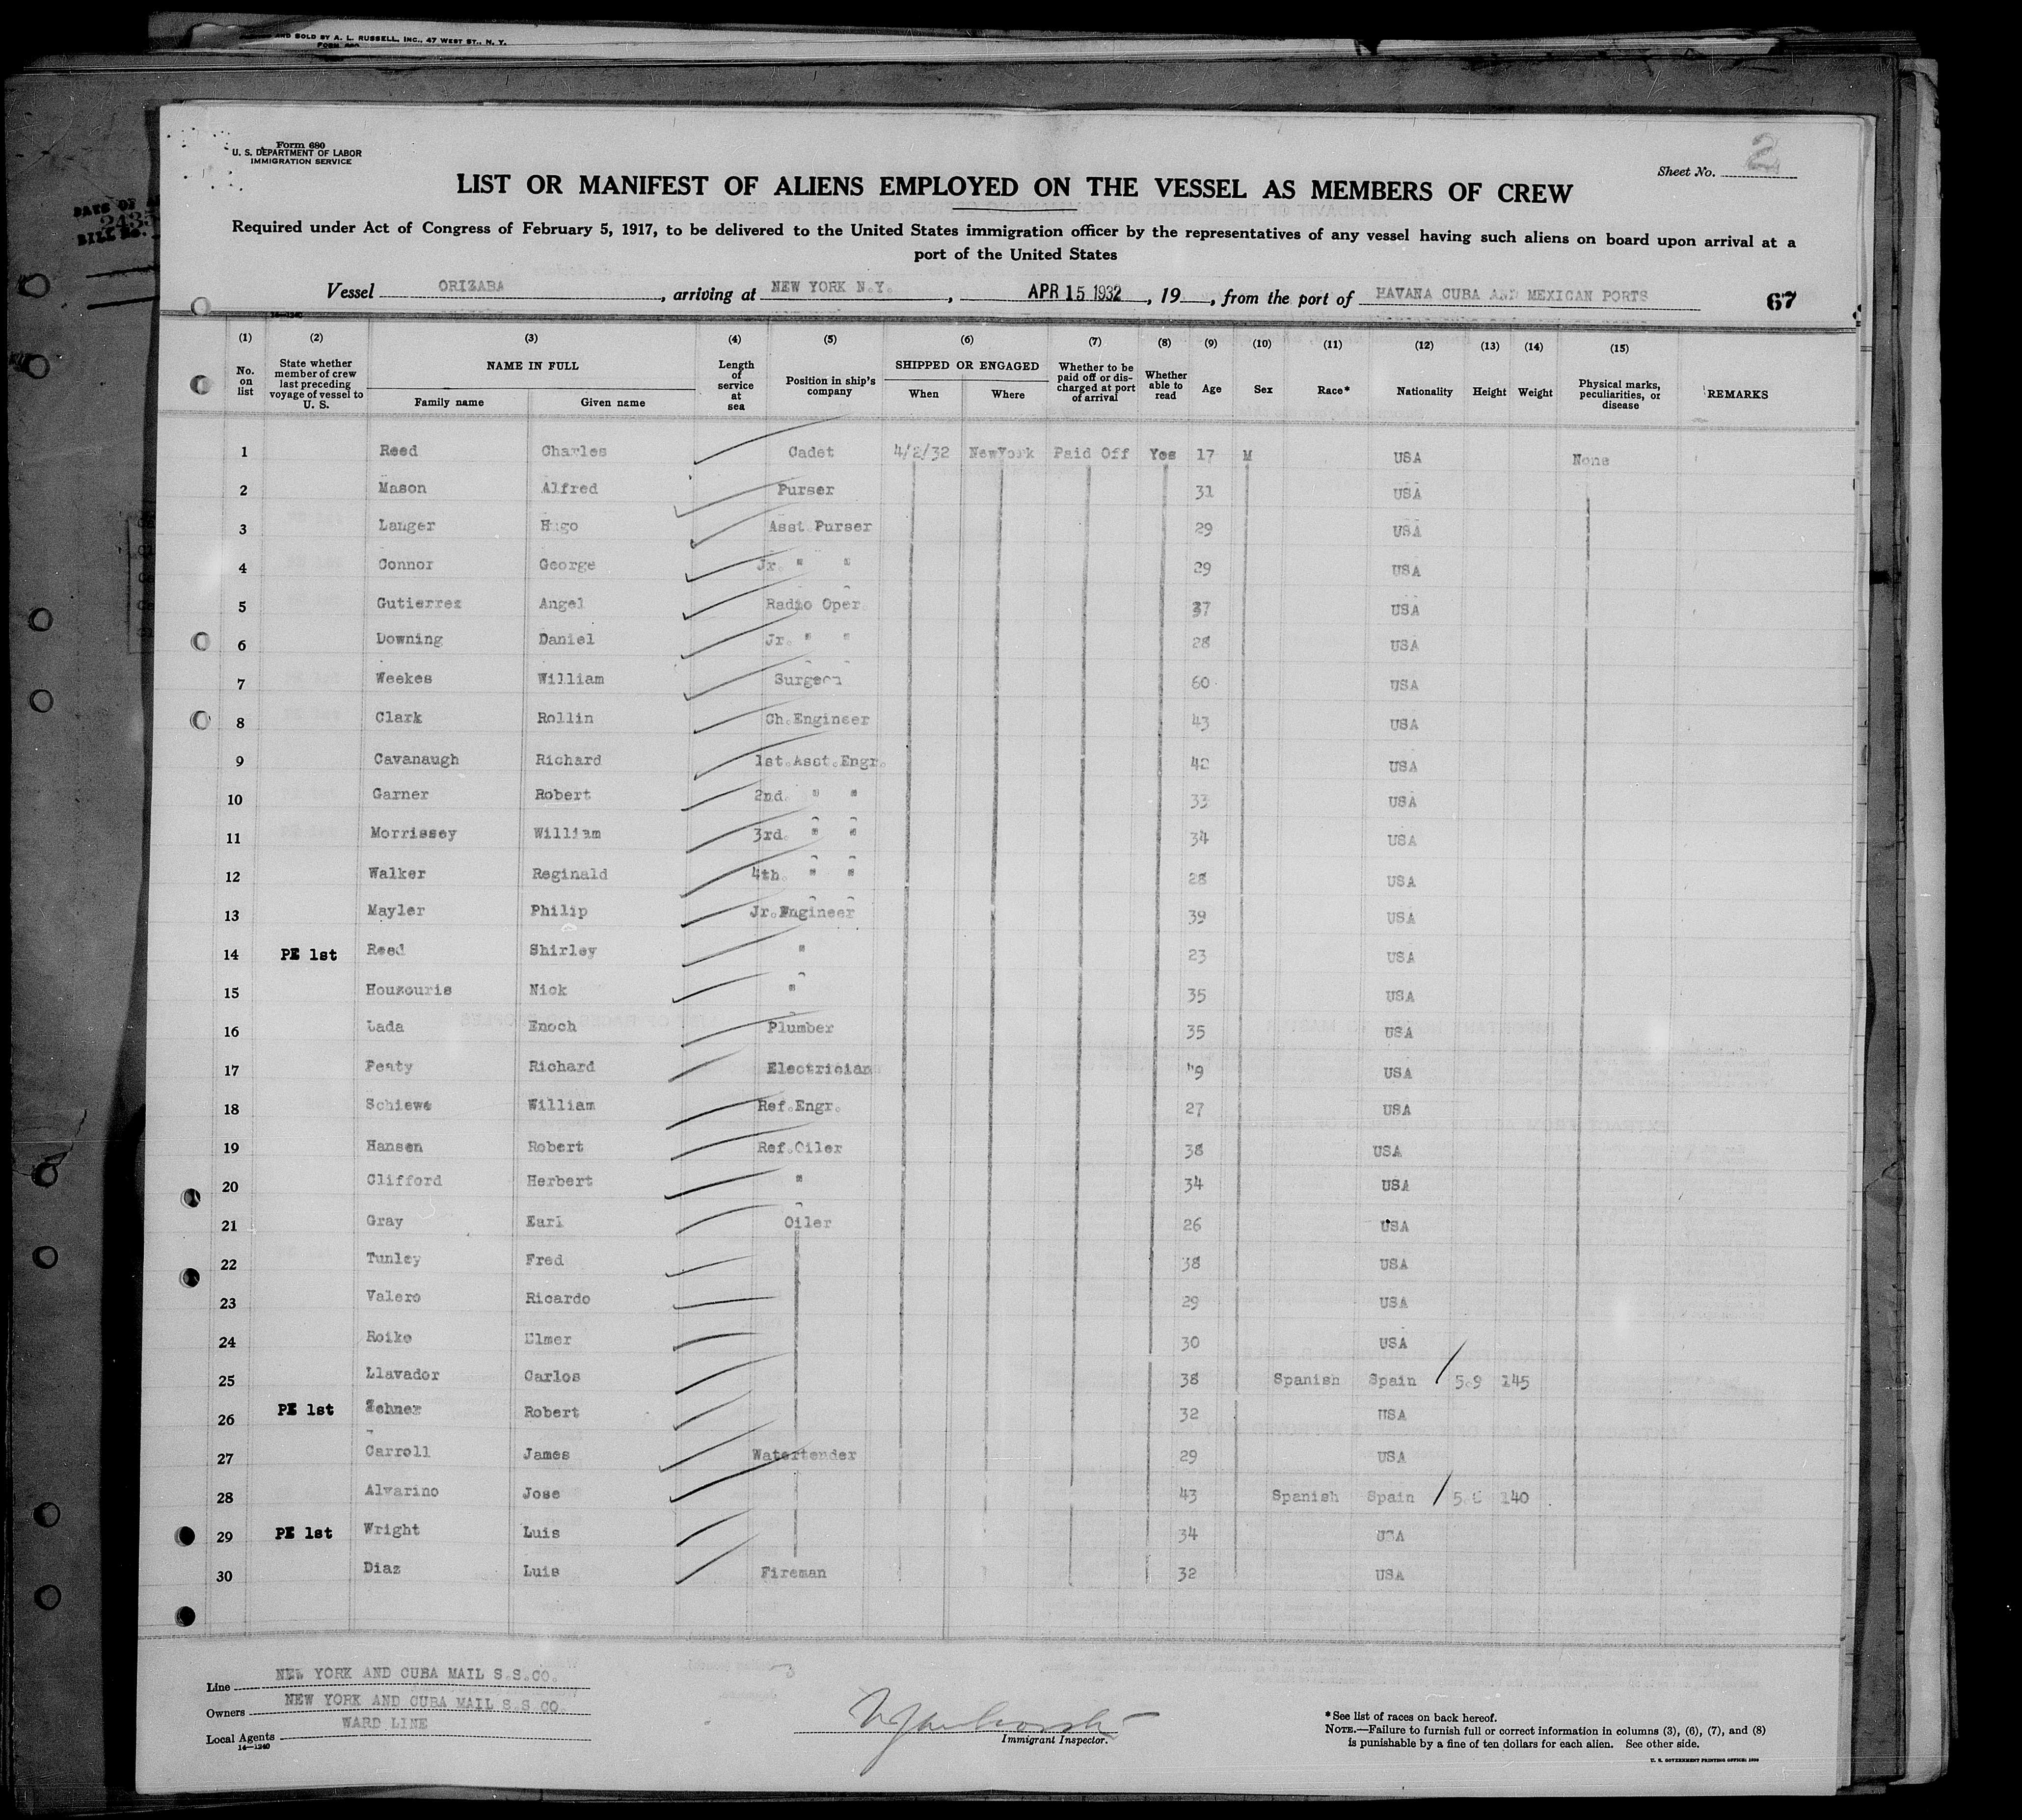 AND SOLD BY A. L. RUSSELL, INC., 47 WEST ST., N. Y.
Form 680
U. S. DEPARTMENT OF LABOR
IMMIGRATION SERVICE
Sheet No. 2
LIST OR MANIFEST OF ALIENS EMPLOYED ON THE VESSEL AS MEMBERS OF CREW
Required under Act of Congress of February 5, 1917, to be delivered to the United States immigration officer by the representatives of any vessel having such aliens on board upon arrival at a
port of the United States
Vessel ORIZABA, arriving at NEW YORK N.Y., APR 15 1932, 19 , from the port of HAVANA CUBA AND MEXICAN PORTS 67
(1) (2) (3) (4) (5) (6) (7) (8) (9) (10) (11) (12) (13) (14) (15)
No. on list State whether member of crew last preceding voyage of vessel to U. S. NAME IN FULL Family name Given name Length of service at sea Position in ship's company SHIPPED OR ENGAGED When Where Whether to be paid off or discharged at port of arrival Whether able to read Age Sex Race* Nationality Height Weight Physical marks, peculiarities, or disease REMARKS
1 Reed Charles Cadet 4/2/32 NewYork Paid Off Yes 17 M USA None
2 Mason Alfred Purser 31 USA
3 Langer Hugo Asst Purser 29 USA
4 Connor George Jr. " " 29 USA
5 Gutierrez Angel Radio Oper. 37 USA
6 Downing Daniel Jr. " " 28 USA
7 Weekes William Surgeon 60 USA
8 Clark Rollin Ch.Engineer 43 USA
9 Cavanaugh Richard 1st.Asst.Engr. 42 USA
10 Garner Robert 2nd. " " 33 USA
11 Morrissey William 3rd. " " 34 USA
12 Walker Reginald 4th. " " 28 USA
13 Mayler Philip Jr.Engineer 39 USA
14 PE 1st Reed Shirley " 23 USA
15 Houzouris Nick " 35 USA
16 Lada Enoch Plumber 35 USA
17 Peaty Richard Electrician USA
18 Schiewe William Ref.Engr. 27 USA
19 Hansen Robert Ref.Oiler 38 USA
20 Clifford Herbert " 34 USA
21 Gray Earl Oiler 26 USA
22 Tunley Fred 38 USA
23 Valero Ricardo 29 USA
24 Roike Elmer 30 USA
25 Llavador Carlos 38 Spanish Spain / 5.9 145
26 PE 1st Zehner Robert 32 USA
27 Carroll James Watertender 29 USA
28 Alvarino Jose 43 Spanish Spain / 140
29 PE 1st Wright Luis 34 USA
30 Diaz Luis Fireman 32 USA
Line NEW YORK AND CUBA MAIL S.S.CO.
Owners NEW YORK AND CUBA MAIL S.S.CO.
Local Agents WARD LINE
14—1240
Immigrant Inspector.
*See list of races on back hereof.
NOTE.—Failure to furnish full or correct information in columns (3), (6), (7), and (8)
is punishable by a fine of ten dollars for each alien. See other side.